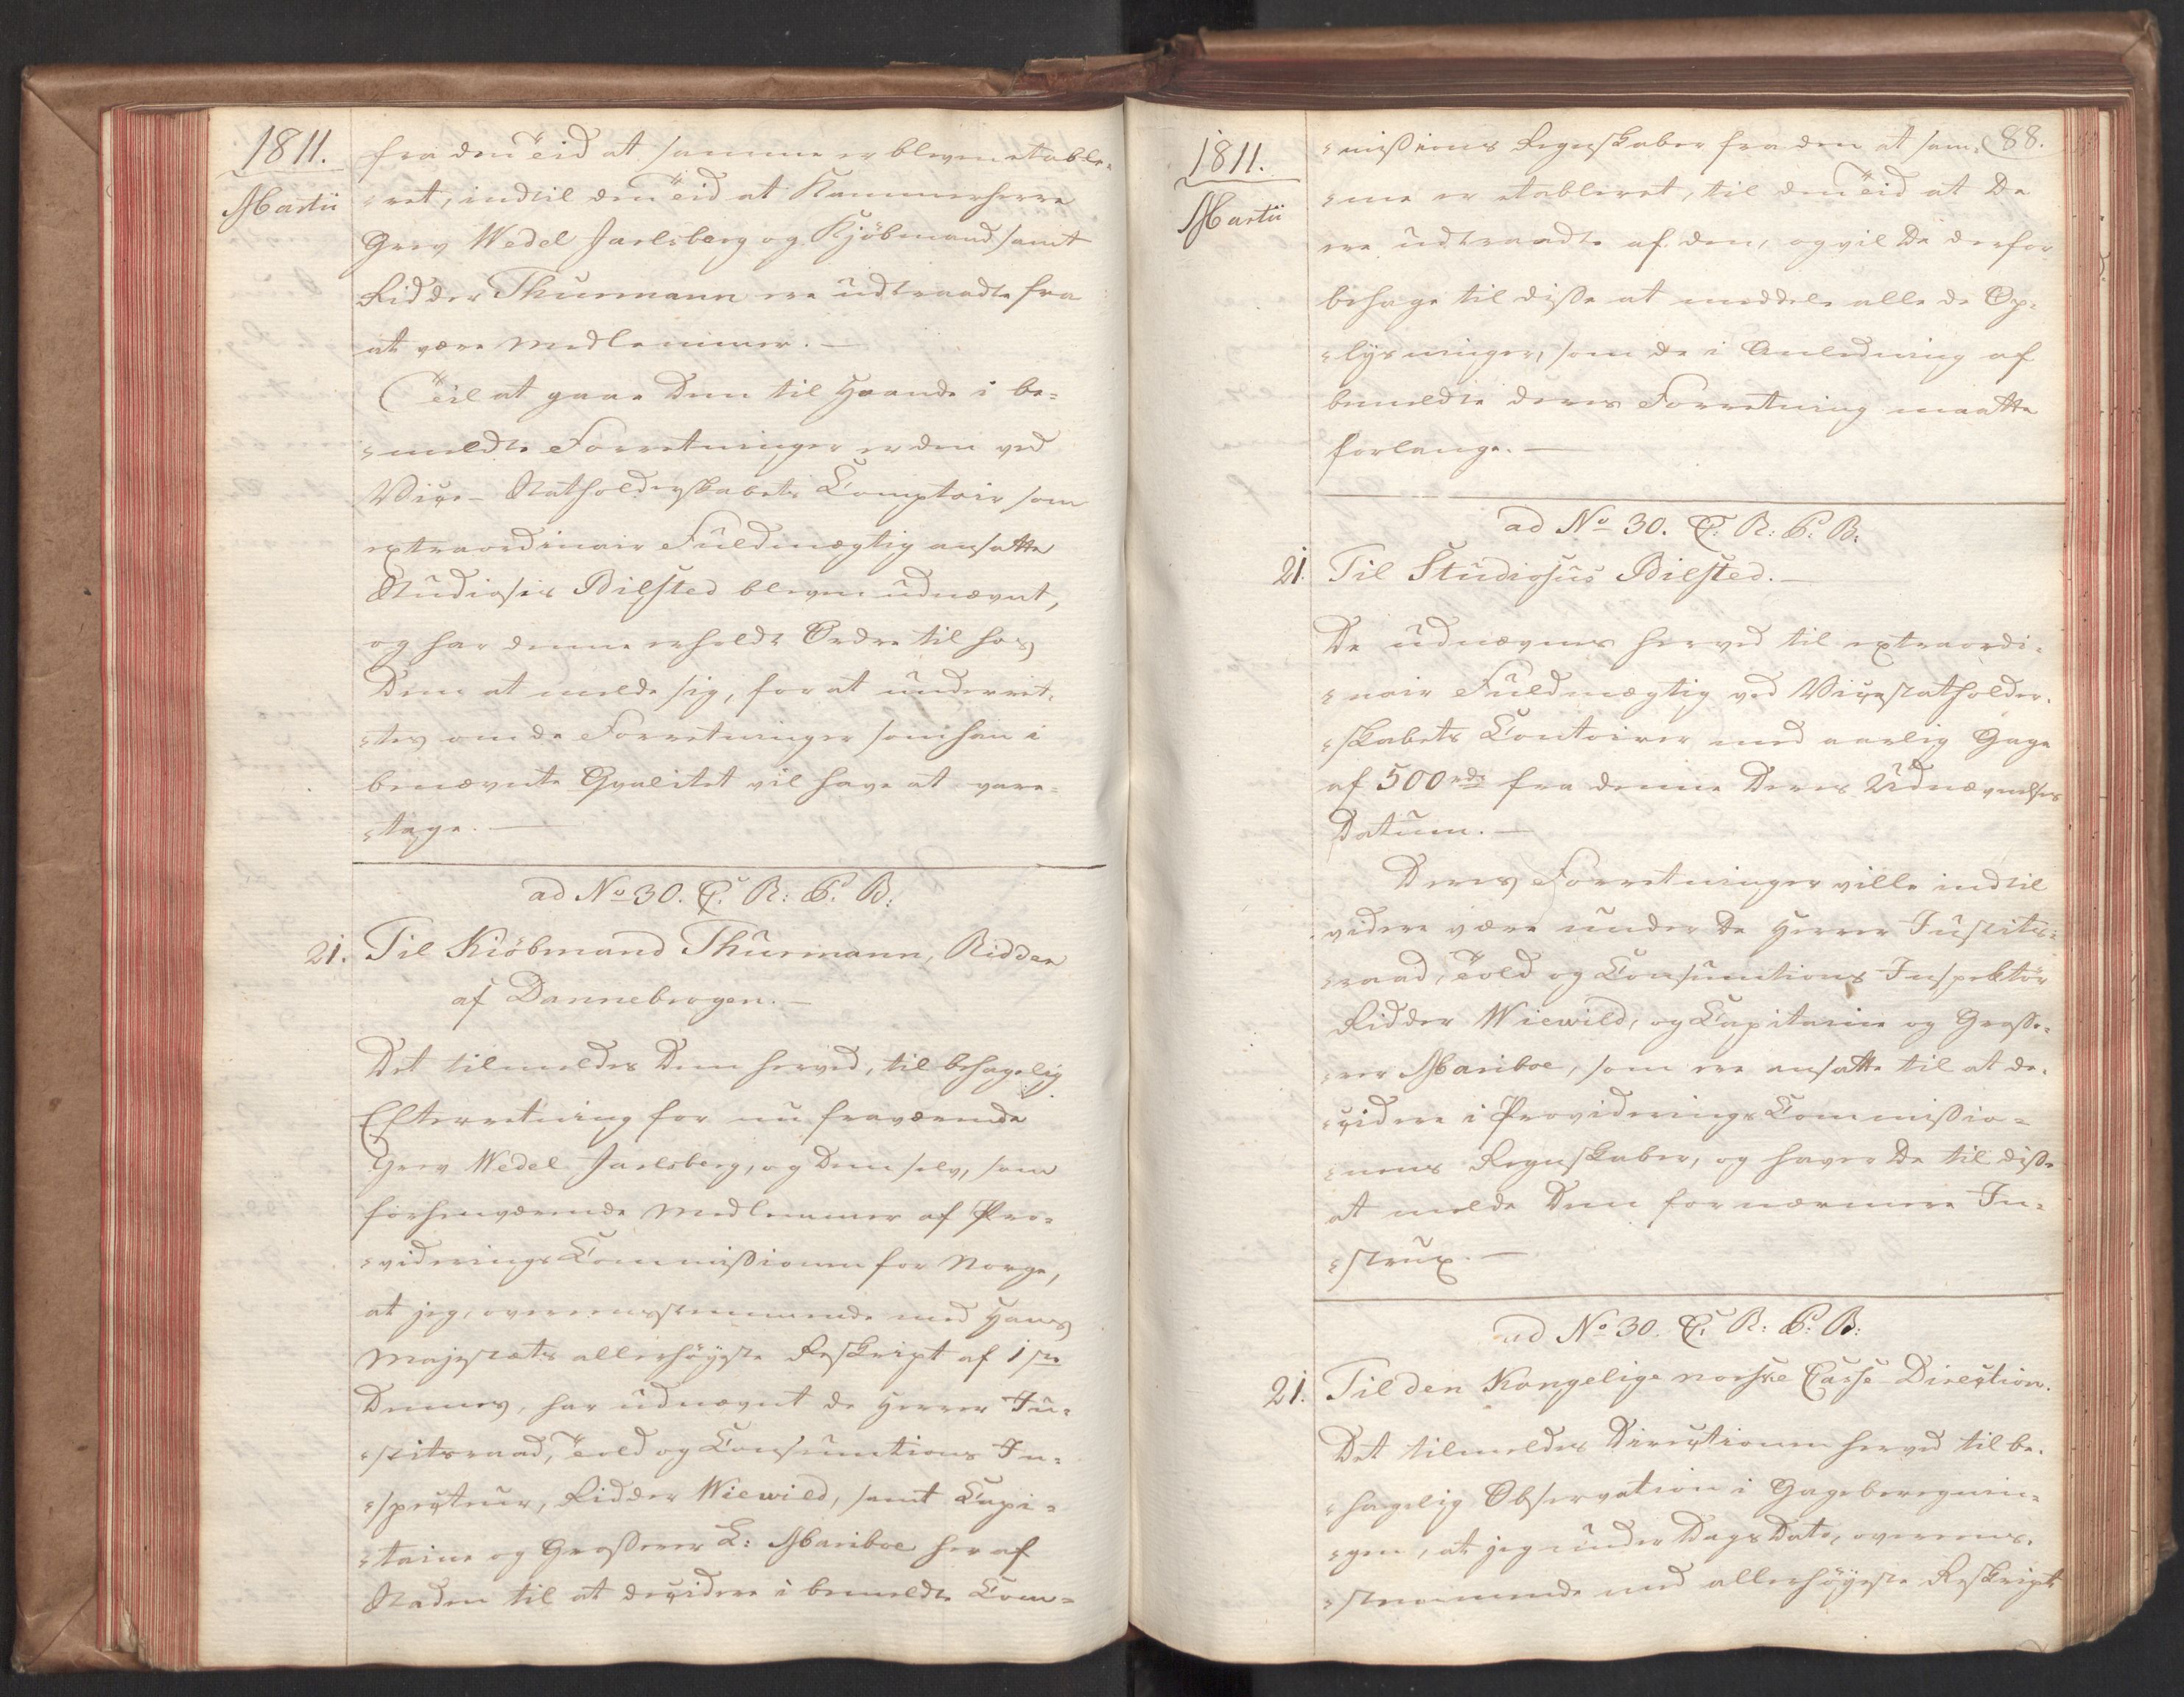 1811.
Martii
fra den Tid at samme er bleven etable-
ret, indtil den Tid at Kammerherre
Grev Wedel Jarlsberg og Kjöbmand samt
Ridder Thurmann ere udtraadte fra
at være Medlemmer. —
Til at gaae Dem til Haande i be-
meldte Forretninger er den ved
Vice-Statholderskabets Comptoir som
extraordinair Fuldmægtig ansatte
Studiosus Bilsted bleven udnævnt,
og har denne erholdt Ordre til hos
Dem at melde sig, for at underret-
tes om de Forretninger som han i
benævnte Qvalitet vil have at vare-
tage. —
ad No 30. C. R: P. B:
21. Til Kiöbmand Thurmann, Ridder
af Dannebrogen. —
Det tilmeldes Dem herved, til behagelig
Efterretning for nu fraværende
Grev Wedel Jarlsberg, og Dem selv, som
forhenværende Medlemmer af Pro-
viderings Commißionen for Norge,
at jeg, overeensstemmende med Hans
Majestæts allerhöyeste Reskript af 1ste
Dennes, har udnævnt de Herrer Ju-
stitsraad, Told og Consumtions In-
specteur, Ridder Wiewild, samt Capi-
taine og Großerer L: Mariboe her af
Staden til at decidere i bemeldte Com-
1811.
Martii
88.
mißions Regnskaber fra den at sam-
me er etableret, til den Tid at De
ere udtraadte af den, og vil De derfor
behage til diße at meddele alle de Op-
lysninger, som de i Anledning af
bemeldte deres Forretning maatte
forlange. —
ad No 30. C. R: P. B:
21. Til Studiosus Bilsted. —
De udnævnes herved til extraordi-
nair Fuldmægtig ved Vicestatholder-
skabets Contoirer med aarlig Gage
af 500 rdr fra denne Deres Udnævnelses
Datum. —
Deres Forretninger ville indtil
videre være under De Herrer Justits-
raad, Told og Consumtions Inspektör
Ridder Wiewild, og Capitaine og Große-
rer Mariboe, som ere ansatte til at de-
cidere i Providerings Commißio-
nens Regnskaber, og haver De til diße
at melde Dem for nærmere In-
strux. —
ad No 30. C. R: P. B:
21. Til den Kongelige norske Casse-Direction.
Det tilmeldes Directionen herved til be-
hagelig Observation i Gageberegnin-
gen, at jeg under Dags Dato, overeens-
stemmende med allerhöyeste Reskript